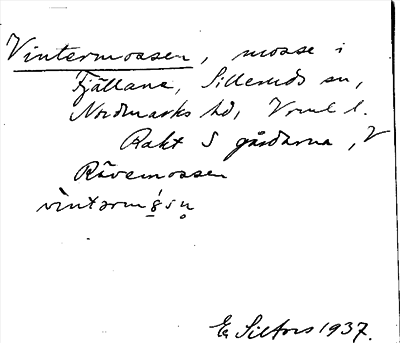 Vintermossen, mosse i
Fjällane, Silleruds sn,
Nordmarks hd, Vrml l.
Rakt S gårdarna, V
Rävemossen
vìntərmǫ́sn̥
E. Silfors 1937.